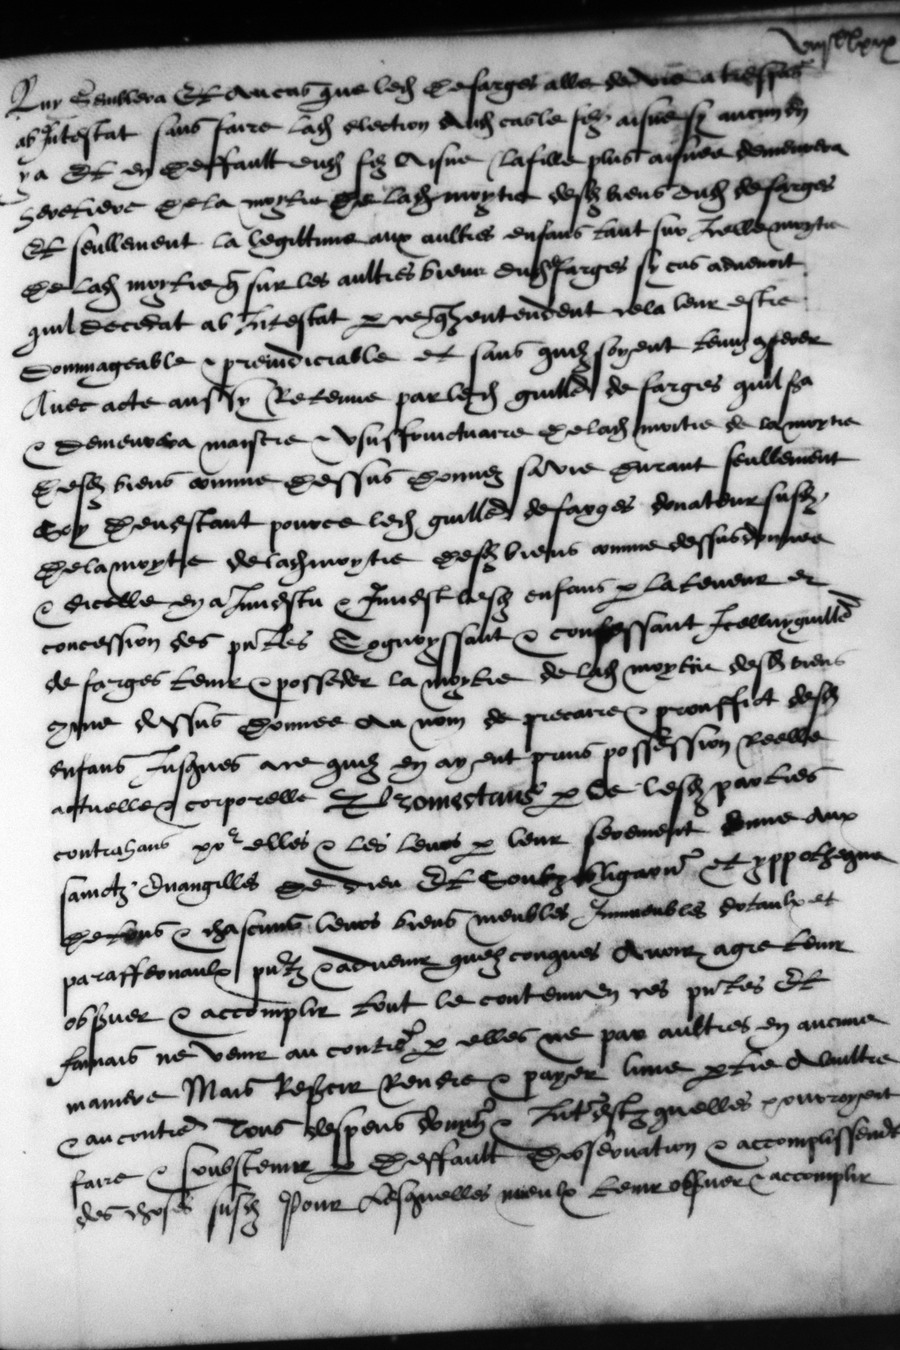 luy semblera Et au cas que led defarges alle de vie a trespas
ab Intestat sans faire lad election aud cas le filz aisne sy aucun en
y a Et en deffault dud filz aisne la fille plus aisnee demeurera
heretiere de la moytie de lad moytie desd biens dud defarges
Et seullement la legittime aux aultres enfans tant sur Icelle moytie
de lad moytie q sur les aultres biens dud defarges sy cas advenoit
quil decedat ab Intestat entendent cela leur estre
dommageable & preiudiciable et sans quilz soyent tenuz
Avec acte aussy Retenue par led guill defarges quil sera
& demeurera maistre & usuffructuaire de lad moitie de la moytie
desd biens comme dessus donnez sa vie durant seullement
Soy devestant pource led guill defarges donateur susd
de la moytie de lad moytie desd biens comme dessus donnee
& dicelle en a Investu & Invest lesd enfans p la teneur et
concession des pntes Cognoyssant & confessant Icelluy guill
de farges tenir & posseder la moytie de lad moytie desd biens
come dessus donnee au nom de precaire & prouffict desd
enfans Jusques ace quilz en ayent prins possession Reelle
actuelle & corporelle Promectans de lesd parties
contrahans por elles & les leurs p leur serement donne aux
sainctz Evangilles de dieu Et Soubz obligaon et yppotheque
de tous & chascuns leurs biens meubles Immeubles dotaulx et
paraffernaulx pntz & advenir quelzconques Avoir agre tenir
observer & accomplir tout le contenu en ces pntes Et
Jamais ne venir au contre p elles ne par aultres en aucune
maniere Mais Reffair Rendre & payer lune ptie a laultre
& au contre Tous despens domaiges & Interestz quelles pourroyent
faire & soubstenir p deffault dobservation & accomplissement
des choses susd Pour lesquelles mieulx tenir observer & accomplir